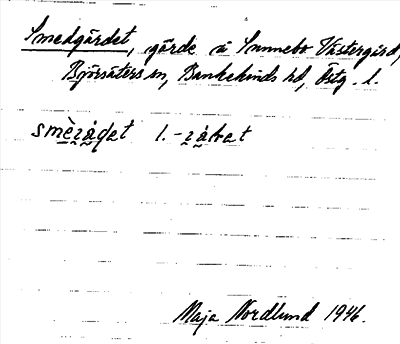 Smedgärdet, gärde å Sunnebo Västergård,
Björsäters sn, Bankekinds hd, Östg. l.
smèẓå̀ɋat l. -ẓåkat
Maja Nordlund 1946.